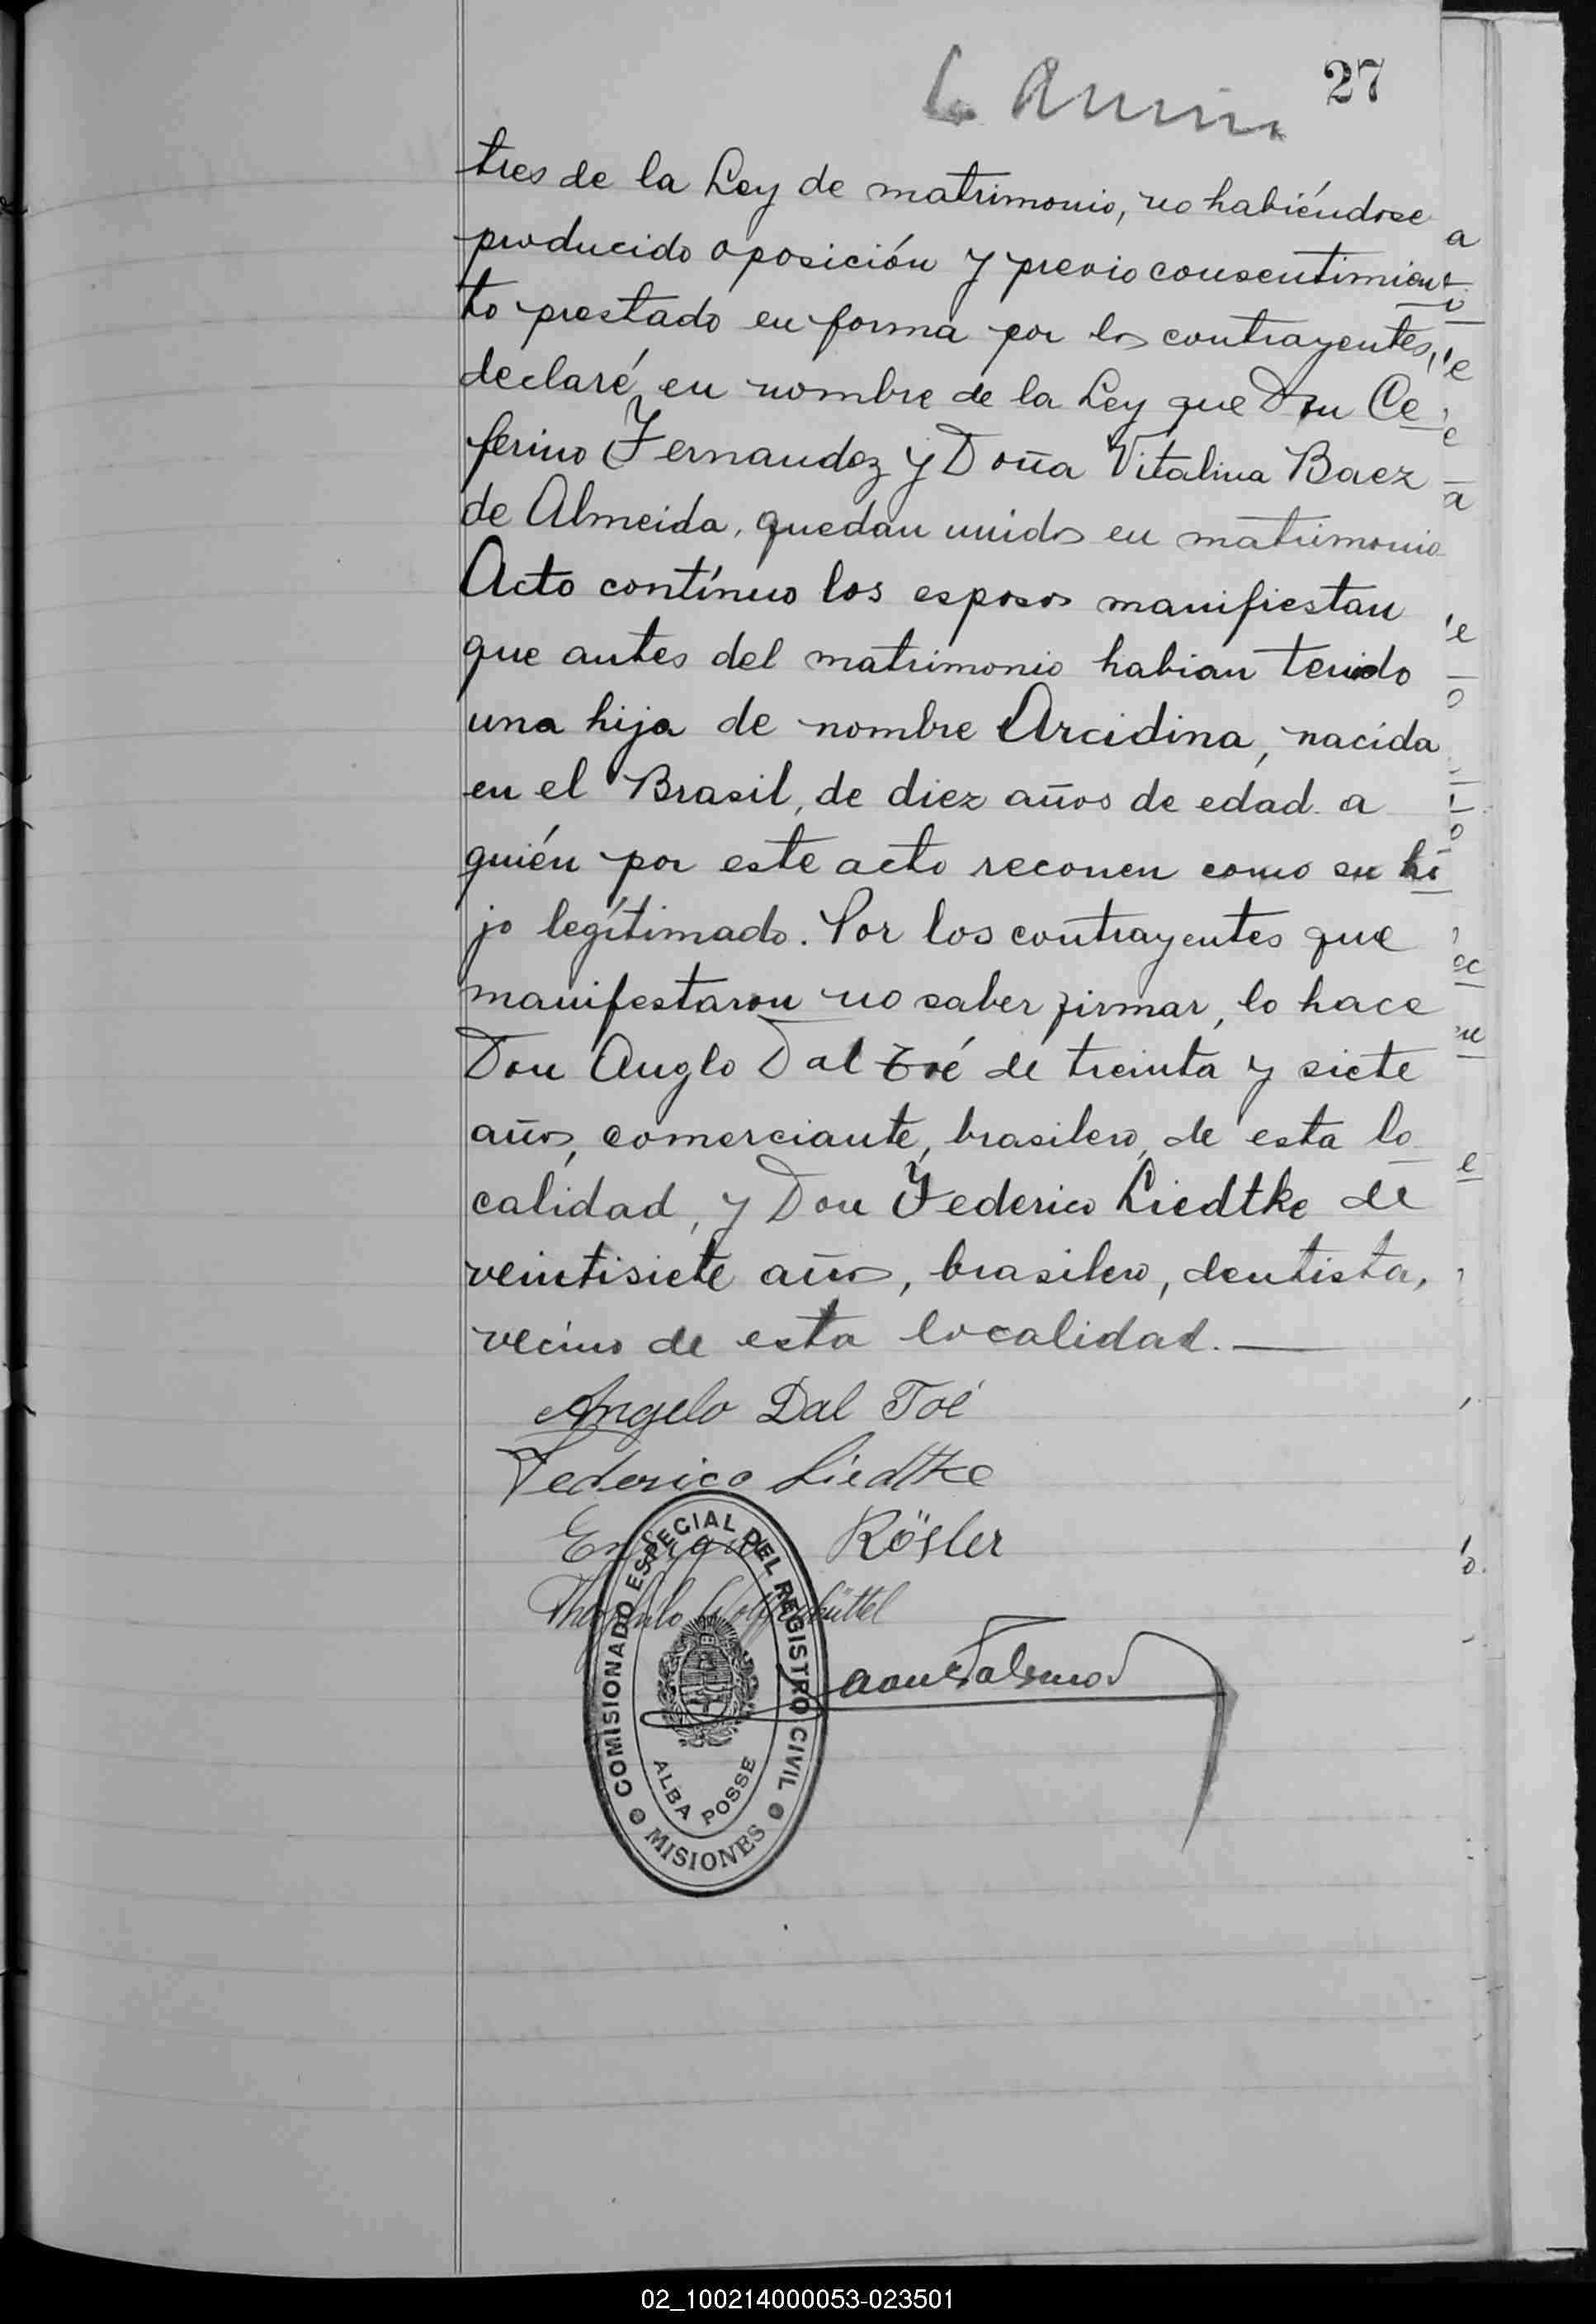 27
tres de la Ley de matrimonio, no habiéndose
producido oposición y previo consentimien
to prestado en forma por los contrayentes,
declaré en nombre de la Ley que Don Ce
ferino Fernandez y Doña Vitalina Baez
de Almeida, quedan unidos en matrimonio
Acto contínuo los esposos manifiestan
que antes del matrimonio habian tenido
una hija de nombre Arcidina, nacida
en el Brasil, de diez años de edad a
quién por este acto reconen como su hi
jo legítimado. Por los contrayentes que
manifestaron no saber firmar, lo hace
Don Anglo Dal Toé de treinta y siete
años, comerciante, brasilero, de esta lo
calidad, y Don Federico Liedtke de
veintisiete años, brasilero, dentista,
vecino de esta localidad.—
Angelo Dal Toé
Federico Liedtke
Enrique Rösler
COMISIONADO ESPECIAL DEL REGISTRO CIVIL
ALBA POSSE
MISIONES
02_100214000053-023501